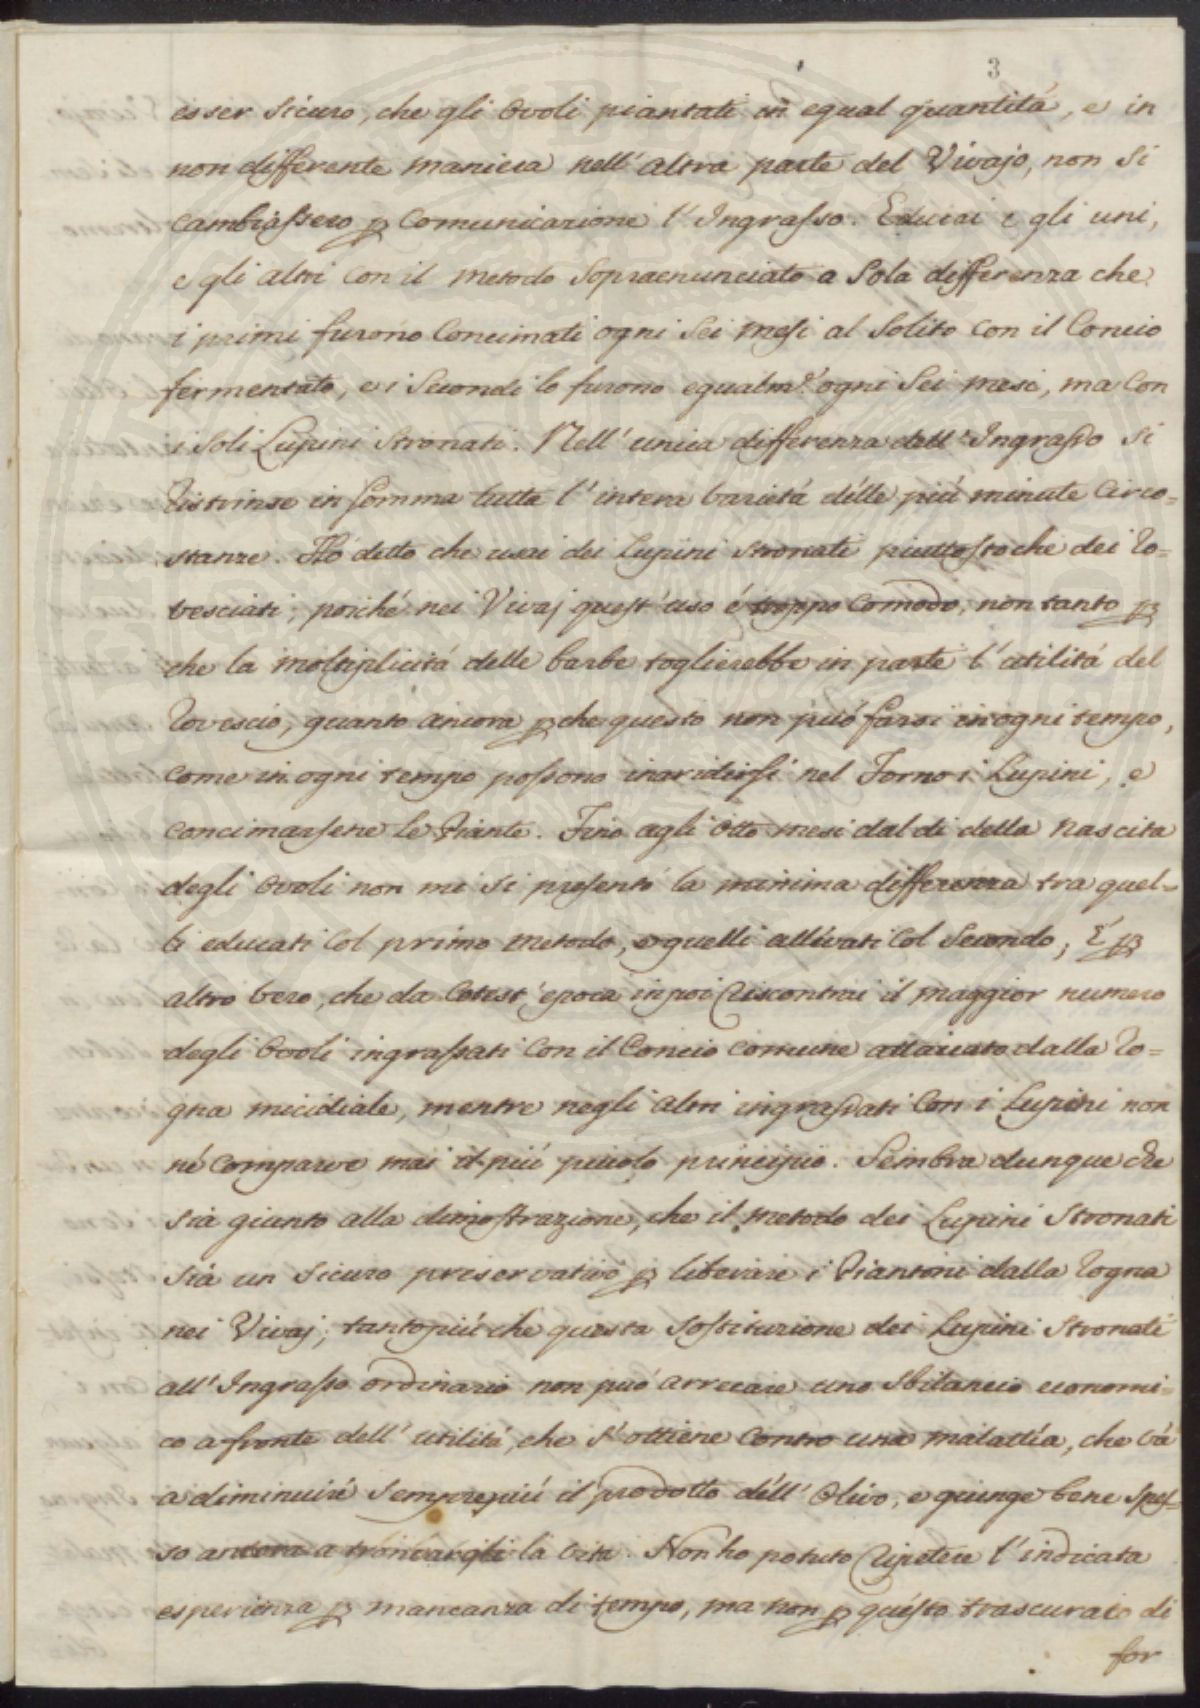 3
esser sicuro, che gli Ovoli piantati in egual quantitá, e in
non differente maniera nell' altra parte del Vivajo, non si
cambiassero p comunicazione l'Ingrasso. Educai e gli uni,
e gli altri con il metodo sopraenunciato a sola differenza che
i primi furono Concimati ogni sei mesi al solito con il Concio
fermentato, e i secondi lo furono egualm.e ogni sei mesi, ma con
i soli Lupini stronati. Nell' unica differenza dell'Ingrasso si
ristrinse in somma tutta l' intera varietá delle piú minute circo=
stanze. Ho detto che usai dei Lupini stronati piuttosto che dei Ro=
vesciati; poiché nei Vivaj quest' uso é troppo comodo, non tanto p
che la moltiplicitá delle barbe toglierebbe in parte l' utilitá del
Rovescio, quanto ancora p che questo non puó farsi in ogni tempo,
come in ogni tempo possono inaridirsi nel Forno i Lupini, e
concimarsene le Piante. Fino agli otto mesi dal di della nascita
degli Ovoli non mi si presentó la minima differenza tra quel=
li educati col primo metodo, e quelli allevati col secondo; É p
altro vero, che da cotest' epoca in poi riscontrai il maggior numero
degli Ovoli ingrassati con il Concio comune attaccato dalla Ro=
gna micidiale, mentre negli altri ingrassati con i Lupini non
né comparve mai il piú piccolo principio. Sembra dunque che
sia giunto alla dimostrazione, che il metodo dei Lupini stronati
sia un sicuro preservativo p liberare i Piantoni dalla Rogna
nei Vivaj; tantopiú che questa sostituzione dei Lupini stronati
all' Ingrasso ordinario non puó arrecare uno sbilancio economi=
co a fronte dell' utilitá, che s' ottiene contro una malattía, che vá
a diminuire semprepiú il prodotto dell' Olivo, e giunge bene spes=
so ancora a troncargli la vita. Non ho potuto ripetere l' indicata
esperienza p mancanza di tempo, ma non p questo trascurato di
for